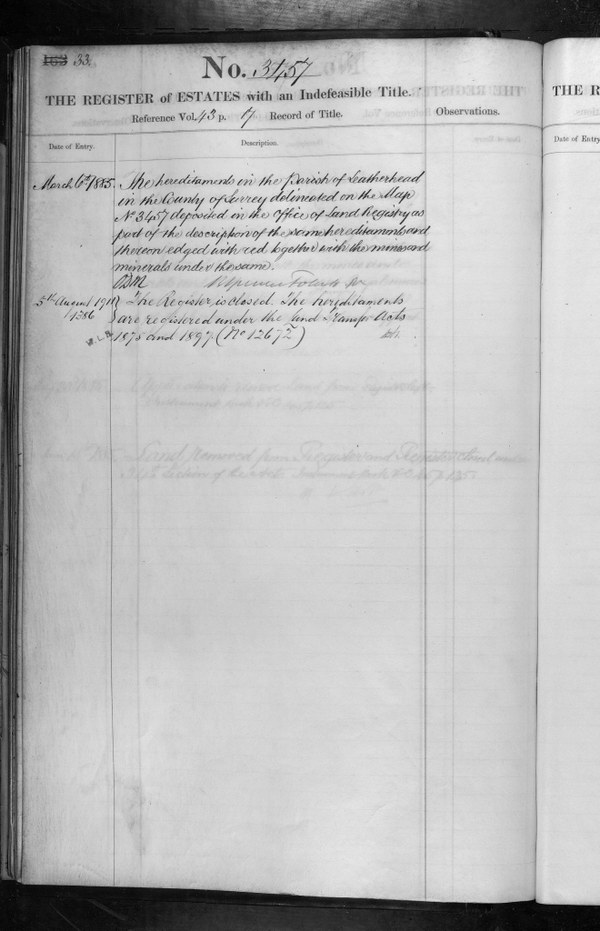 33
No. 3457
THE REGISTER of ESTATES with an Indefeasible Title.
Reference Vol. 43 p. 17 Record of Title.
Observations.
Date of Entry.
Description.
March 6th 1885
The hereditaments in the Parish of Leatherhead
in the County of Surrey delineated on the Map
No 3457 deposited in the Office of Land Registry as
part of the description of the same hereditaments and
thereon edged with red together with the mines and
minerals under the same.
5th August 1911
1386
The Register is closed. The hereditaments
are registered under the Land Transfer Acts
1875 and 1897 (No 12672)
THE R
Date of Entry